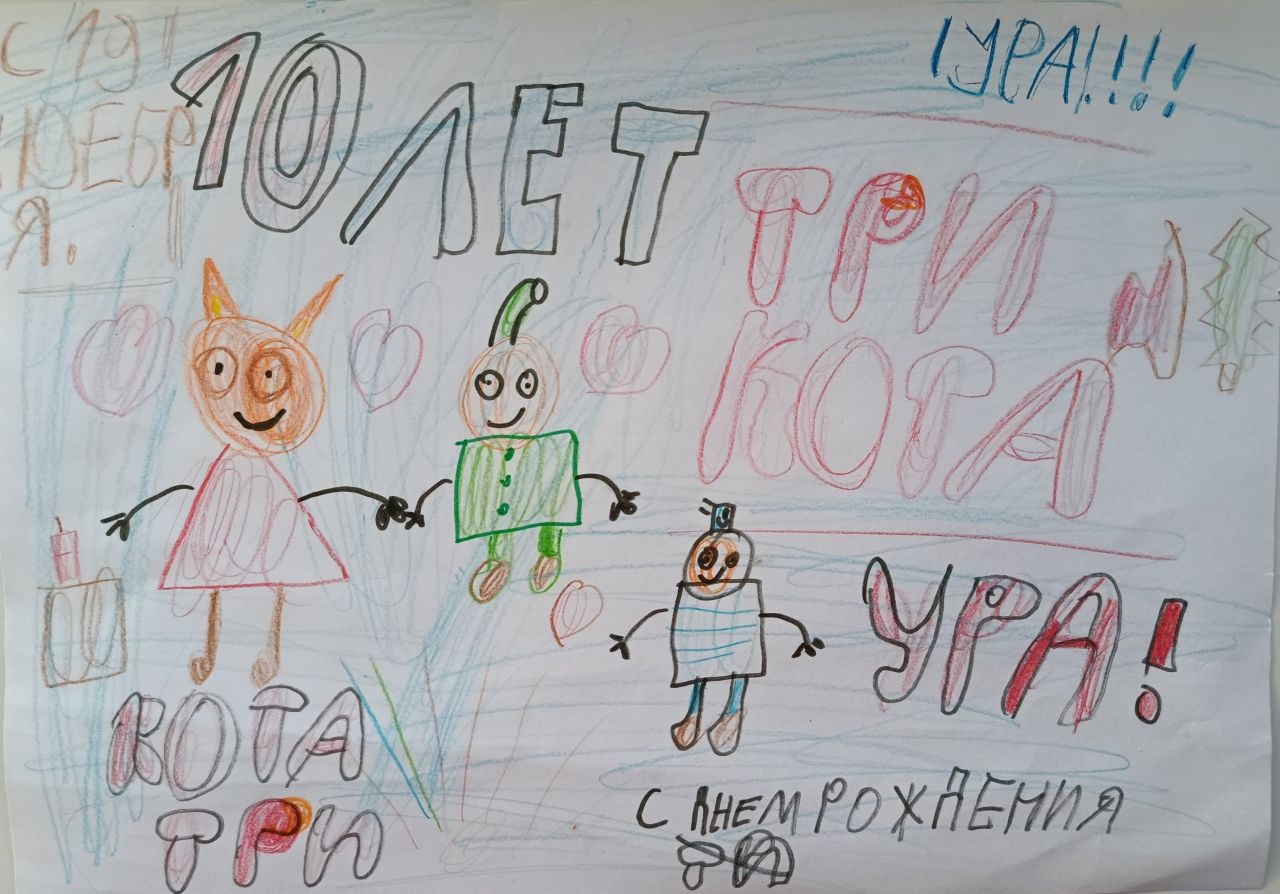 С 19
НОЕБР
Я.
10 ЛЕТ
!УРА!!!!
ТРИ
КОТА
УРА!
КОТА
ТРИ
С ДНЕМ РОЖДЕНИЯ